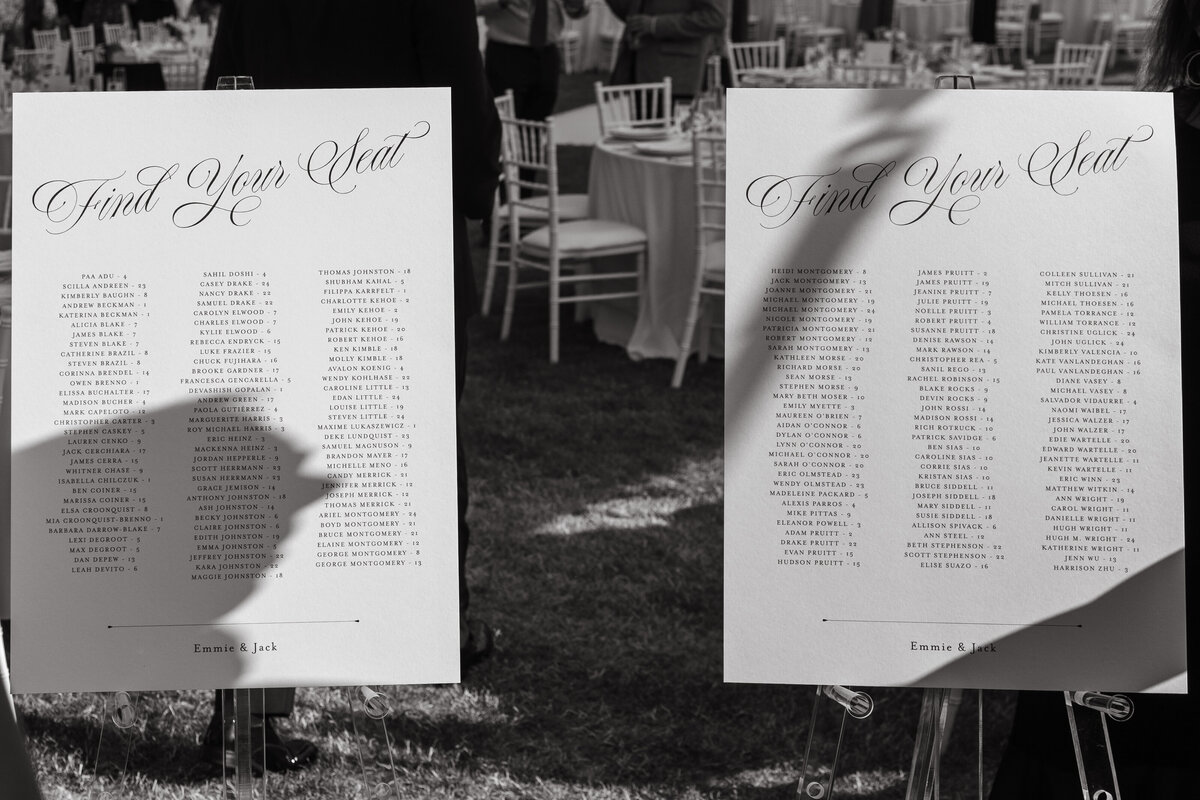 Find Your Seat
PAA ADU - 4
SCILLA ANDREEN - 23
KIMBERLY BAUGHN - 8
ANDREW BECKMAN - 1
KATERINA BECKMAN - 1
ALICIA BLAKE - 7
JAMES BLAKE - 7
STEVEN BLAKE - 7
CATHERINE BRAZIL - 8
STEVEN BRAZIL - 8
CORINNA BRENDEL - 14
OWEN BRENNO - 1
ELISSA BUCHALTER - 17
MADISON BUCHER - 4
MARK CAPELOTO - 12
CHRISTOPHER CARTER - 3
STEPHEN CASKEY - 5
LAUREN CENKO - 9
JACK GERCHIARA - 17
JAMES CERRA - 15
WHITNER CHASE - 9
ISABELLA CHILCZUK - 1
BEN COINER - 15
MARISSA COINER - 15
ELSA CROONQUIST - 8
MIA CROONQUIST-BRENNO - 1
BARBARA DARROW-BLAKE - 7
LEXI DEGROOT - 5
MAX DEGROOT - 5
DAN DEPEW - 13
LEAH DEVITO - 6
SAHIL DOSHI - 4
CASEY DRAKE - 24
NANCY DRAKE - 22
SAMUEL DRAKE - 22
CAROLYN ELWOOD - 7
CHARLES ELWOOD - 7
KYLIE ELWOOD - 6
REBECCA ENDRYCK - 15
LUKE FRAZIER - 15
CHUCK FUJIHARA - 16
BROOKE GARDNER - 17
FRANCESCA GENCARELLA - 5
DEVASHISH GOPALAN - 1
ANDREW GREEN - 17
PAOLA GUTIÉRREZ - 4
MARGUERITE HARRIS - 3
ROY MICHAEL HARRIS - 3
ERIC HEINZ - 3
MACKENNA HEINZ - 3
JORDAN HEPPERLE - 9
SCOTT HERRMANN - 23
SUSAN HERRMANN - 23
GRACE JEMISON - 14
ANTHONY JOHNSTON - 18
ASH JOHNSTON - 14
BECKY JOHNSTON - 6
CLAIRE JOHNSTON - 6
EDITH JOHNSTON - 19
EMMA JOHNSTON - 5
JEFFREY JOHNSTON - 22
KARA JOHNSTON - 22
MAGGIE JOHNSTON - 18
THOMAS JOHNSTON - 18
SHUBHAM KAHAL - 5
FILIPPA KARRFELT - 1
CHARLOTTE KEHOE - 2
EMILY KEHOE - 2
JOHN KEHOE - 19
PATRICK KEHOE - 20
ROBERT KEHOE - 16
KEN KIMBLE - 18
MOLLY KIMBLE - 18
AVALON KOENIG - 4
WENDY KOHLHASE - 22
CAROLINE LITTLE - 13
EDAN LITTLE - 24
LOUISE LITTLE - 19
STEVEN LITTLE - 24
MAXIME LUKASZEWICZ - 1
DEKE LUNDQUIST - 23
SAMUEL MAGNUSON - 9
BRANDON MAYER - 17
MICHELLE MENO - 16
CANDY MERRICK - 21
JENNIFER MERRICK - 12
JOSEPH MERRICK - 12
THOMAS MERRICK - 21
ARIEL MONTGOMERY - 24
BOYD MONTGOMERY - 21
BRUCE MONTGOMERY - 21
ELAINE MONTGOMERY - 12
GEORGE MONTGOMERY - 8
GEORGE MONTGOMERY - 13
Emmie & Jack
Find Your Seat
HEIDI MONTGOMERY - 8
JACK MONTGOMERY - 13
JOANNE MONTGOMERY - 21
MICHAEL MONTGOMERY - 19
MICHAEL MONTGOMERY - 24
NICOLE MONTGOMERY - 19
PATRICIA MONTGOMERY - 21
ROBERT MONTGOMERY - 12
SARAH MONTGOMERY - 13
KATHLEEN MORSE - 20
RICHARD MORSE - 20
SEAN MORSE - 13
STEPHEN MORSE - 9
MARY BETH MOSER - 10
EMILY MYETTE - 3
MAUREEN O'BRIEN - 7
AIDAN O'CONNOR - 6
DYLAN O'CONNOR - 6
LYNN O'CONNOR - 20
MICHAEL O'CONNOR - 20
SARAH O'CONNOR - 20
ERIC OLMSTEAD - 23
WENDY OLMSTEAD - 23
MADELEINE PACKARD - 5
ALEXIS PARROS - 4
MIKE PITTAS - 9
ELEANOR POWELL - 3
ADAM PRUITT - 2
DRAKE PRUITT - 22
EVAN PRUITT - 15
HUDSON PRUITT - 15
JAMES PRUITT - 2
JAMES PRUITT - 19
JEANINE PRUITT - 7
JULIE PRUITT - 19
NOELLE PRUITT - 3
ROBERT PRUITT - 4
SUSANNE PRUITT - 18
DENISE RAWSON - 14
MARK RAWSON - 14
CHRISTOPHER REA - 5
SANIL REGO - 13
RACHEL ROBINSON - 15
BLAKE ROCKS - 9
DEVIN ROCKS - 9
JOHN ROSSI - 14
MADISON ROSSI - 14
RICH ROTRUCK - 10
PATRICK SAVIDGE - 6
BEN SIAS - 10
CAROLINE SIAS - 10
CORRIE SIAS - 10
KRISTAN SIAS - 10
BRUCE SIDDELL - 11
JOSEPH SIDDELL - 18
MARY SIDDELL - 11
SUSIE SIDDELL - 18
ALLISON SPIVACK - 6
ANN STEEL - 12
BETH STEPHENSEN - 22
SCOTT STEPHENSEN - 22
ELISE SUAZO - 16
COLLEEN SULLIVAN - 21
MITCH SULLIVAN - 21
KELLY THOESEN - 16
MICHAEL THOESEN - 16
PAMELA TORRANCE - 12
WILLIAM TORRANCE - 12
CHRISTINE UGLICK - 24
JOHN UGLICK - 24
KIMBERLY VALENCIA - 10
KATE VANLANDEGHAN - 16
PAUL VANLANDEGHAN - 16
DIANE VASEY - 8
MICHAEL VASEY - 8
SALVADOR VIDAURRE - 4
NAOMI WAIBEL - 17
JESSICA WALZER - 17
JOHN WALZER - 17
EDIE WARTELLE - 20
EDWARD WARTELLE - 20
JEANETTE WARTELLE - 11
KEVIN WARTELLE - 11
ERIC WINN - 23
MATTHEW WITKIN - 14
ANN WRIGHT - 19
CAROL WRIGHT - 11
DANIELLE WRIGHT - 11
HUGH WRIGHT - 11
HUGH M. WRIGHT - 24
KATHERINE WRIGHT - 11
JENN WU - 13
HARRISON ZHU - 3
Emmie & Jack